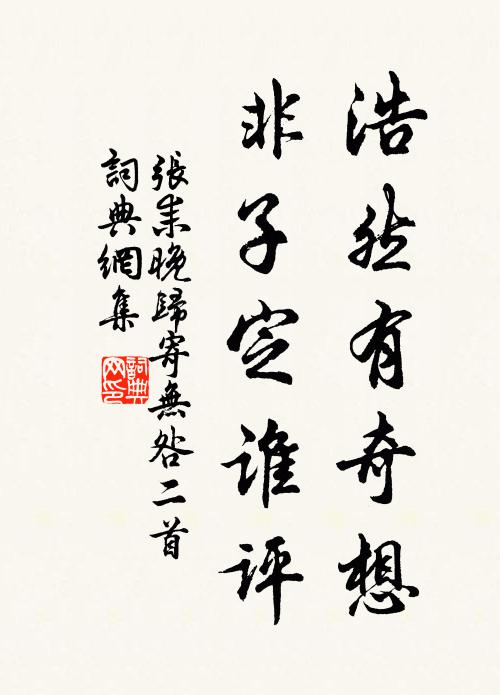 浩然有奇想
非子定谁评
張耒晚歸寄無咎二首
詞典網集
詞典
网印